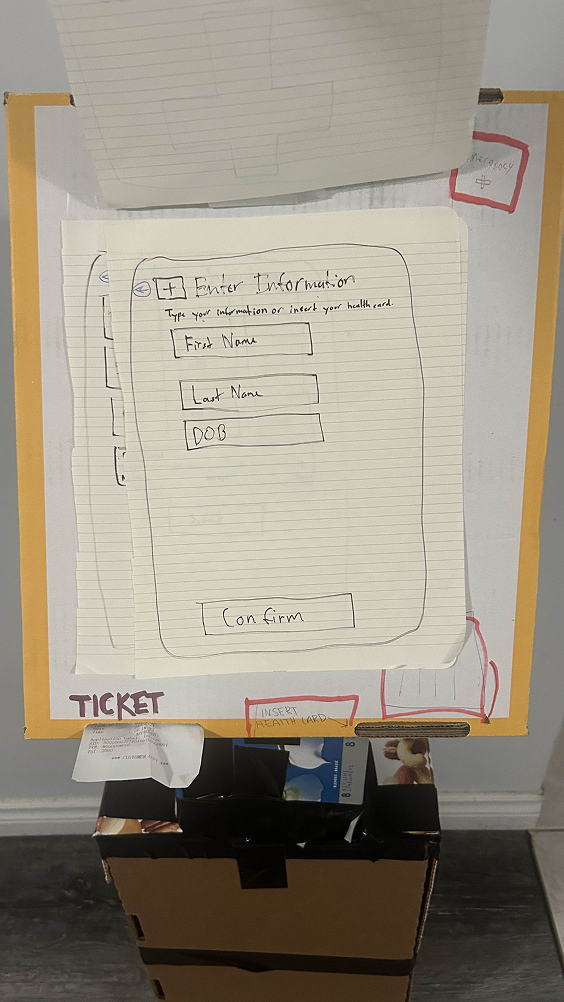 Emergency
Enter Information
Type your information or insert your healthcard.
First Name
Last Name
DOB
Confirm
TICKET
INSERT
HEALTH CARD
8
8